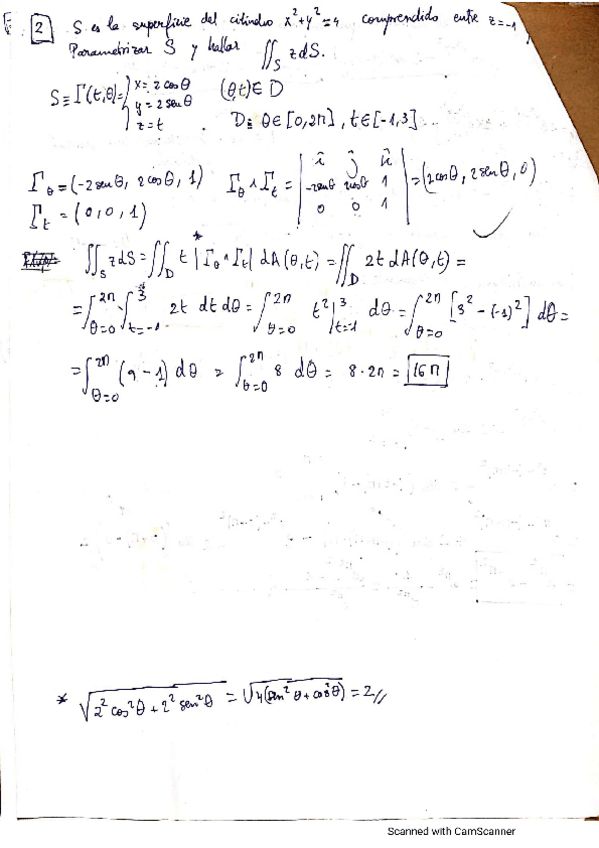 2 S es la superficie del cilindro x²+y²=4 comprendido entre z=-1
Parametrizar S y hallar ∬_S z dS.
S ≡ Γ(t,θ) = { x = 2 cos θ (θ,t) ∈ D
y = 2 sen θ
z = t D ≡ θ ∈ [0,2π], t ∈ [-1,3]
Γ_θ = (-2 sen θ, 2 cos θ, 1) Γ_θ ∧ Γ_t = | i j k | = (2 cos θ, 2 sen θ, 0)
-2 sen θ 2 cos θ 1
Γ_t = (0, 0, 1) 0 0 1
∬_S z dS = ∬_D t |Γ_θ ∧ Γ_t|* dA(θ,t) = ∬_D 2t dA(θ,t) =
= ∫_{θ=0}^{2π} ∫_{t=-1}^{3} 2t dt dθ = ∫_{θ=0}^{2π} t² |_{t=-1}^{3} dθ = ∫_{θ=0}^{2π} [3² - (-1)²] dθ =
= ∫_{θ=0}^{2π} (9 - 1) dθ = ∫_{θ=0}^{2π} 8 dθ = 8·2π = 16π
* √(2² cos² θ + 2² sen² θ) = √(4(sen² θ + cos² θ)) = 2 //
Scanned with CamScanner